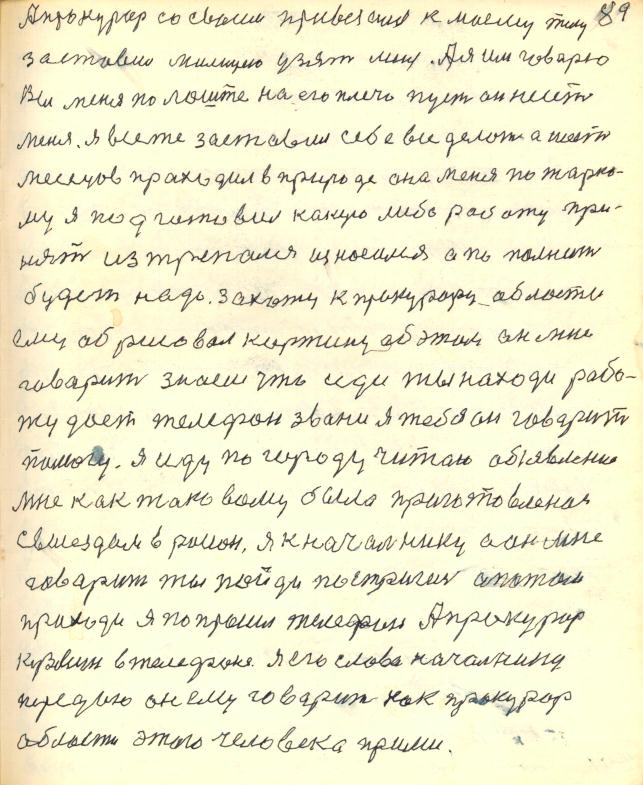 Апрокурор со своим привезли к моему телу 89
заставил милицию узят мене. А я им говарю
Вы меня положите на его плечо пуст он несёт
меня. я всете заставил себе все делат а шест
месецов праходил в природе она меня по жарко-
му я подготовил какую либо работу при-
нят изтрепался износился а по полнит
будет надо. захожу к прокурору области
ему обрисовал картину обэтом он мне
говарит знаеш что иди ты находи рабо-
ту даст телефон звани я тебя он говарит
помогу. я иду по городу читаю обявление
мне как таковому была приготовленая
свыездом в район. я к началнику а он мне
говарит ты пойди постригис а потом
приходи я попрошил телефон Апрокурор
в телефоне. я его слова началнику
передаю он ему говарит как прокурор
области этого человека прими.